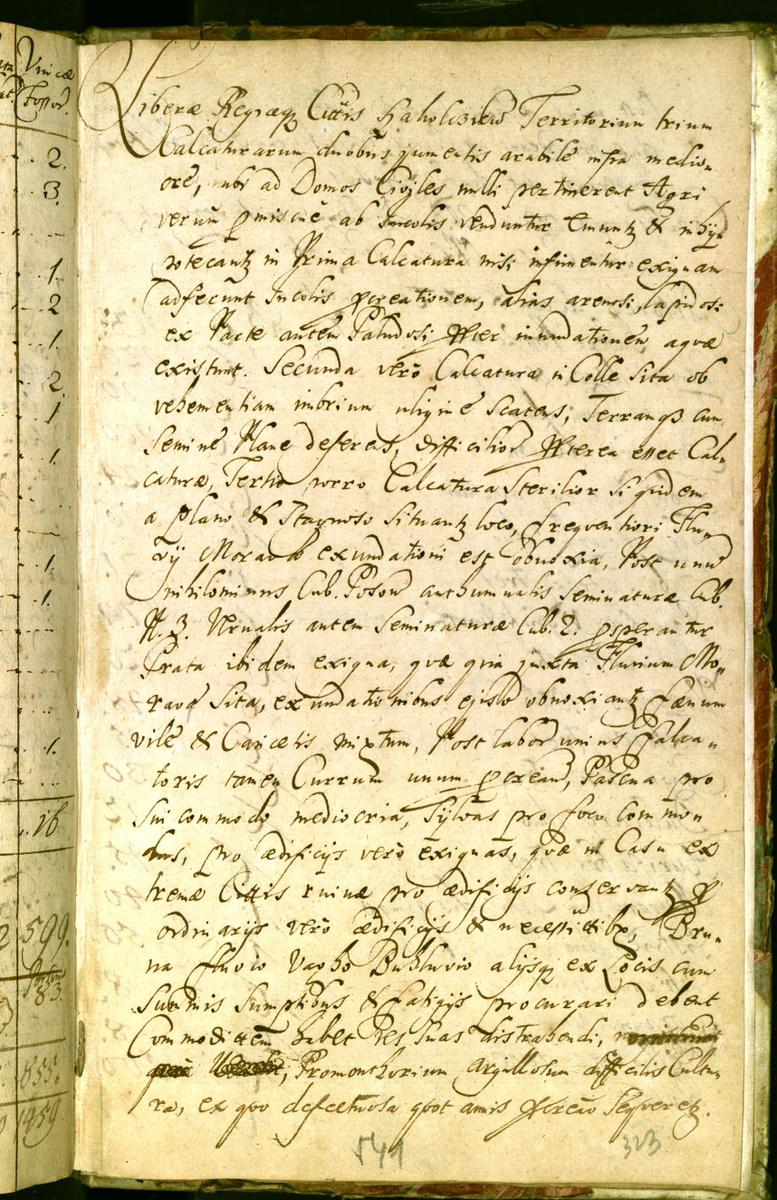 Vineæ
Fossor.
2.
3.
1
2
1.
2.
1
1.
1.
1.
1.
16
599.
83.
855.
1459
Liberæ Regiæq; Cittis Territorium trium
Calcaturarum duobus jumentis arabile infra medio-
cre, ubi ad Domos Civiles nulli pertinerent Agri
verum pmiscue ab Incolis venduntur Emuntʒ & inhy-
potecantʒ in Prima Calcatura nisi exiguam
adferunt Incolis pcreationem, alias arenosi, lapidosi
ex Parte autem Paludosi ppter inundationem aquæ
existunt. Secunda vero Calcatura in Colle Sita ob
vehementiam imbrium uligine Scatens, Terramqs cum
Semine Plane deferens, difficilior ppterea esset Cal-
caturæ, Tertia porro Calcatura Sterilior Siquidem
a plano & Stagnoso Situantʒ loco, frequentiori Flu-
vij Moravæ exundationi est obnoxia, Post unu
nihilominus Cub. Poson authumnalis Seminaturæ Cub.
N. 3. Vernalis autem Seminaturæ Cub. 2. psperantur
Prata ibidem exigua, quæ quia juxta Fluvium Mo-
ravæ Sita, exundationibus ejusd obnoxiantʒ fænum
vile & Caricetis mixtum, Post labor unius Falca-
toris tamen Currum unum pcrean, Pascua pro
Sui commodo mediocria, Sylvas pro foco commo-
das, pro ædificijs vero exiguas, quæ in Casu ex
tremæ Cittis ruinæ pro ædificijs conservantʒ p
ordinarijs vero ædificijs & necessitatibʒ, Bru-
na fluvio Vagho alijsqʒ ex Locis cum
Summis Sumptibus & fatigijs procurari debent
Commodittem habet res suas distrahendi,
Promonthorium argillosum difficilis Cultu-
ra, ex quo defectuosa quot annis pcreao Sequeretʒ.
541
323